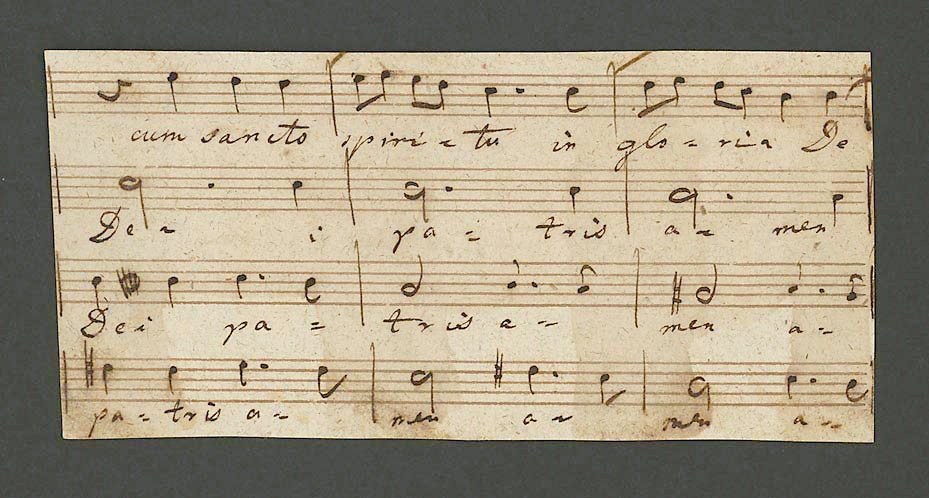 cum sancto spiri-tu in glo-ria De
De- i pa- tris a- men
Dei pa- tris a- men a-
pa-tris a- men a- men a-